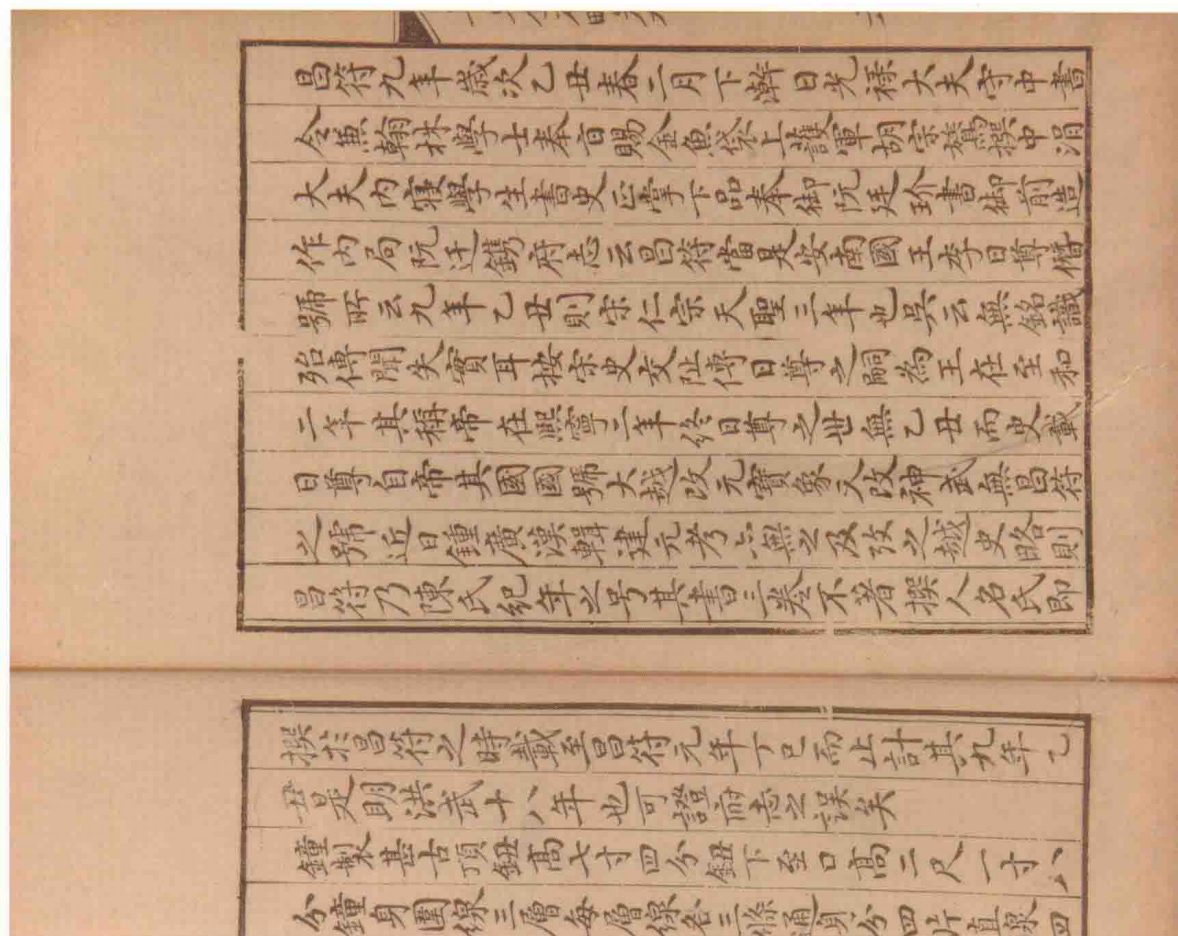 昌符九年歲次乙丑春二月下澣日光祿大夫守中書
令兼翰林學士奉旨賜金魚袋上護軍胡宗鷟撰中涓
大夫内寢學生書史正掌下品奉御阮廷玠書御前造
作内局阮迁鐫府志云昌符當是安南國王李日尊僭
號所云九年乙丑則宋仁宗天聖三年也吳云無銘識
殆傳聞失實耳按宋史交阯傳日尊之嗣為王在至和
二年其稱帝在熙寧二年終日尊之世無乙丑而史載
日尊自帝其國國號大越改元寶象又改神武無昌符
之號近日鍾廣漢輯建元考亦無之及攷之越史略則
昌符乃陳氏紀年之号其書三卷不著撰人名氏即
撰於昌符之時載至昌符元年丁巳而止計其九年乙
丑是明洪武十八年也可證府志之誤矣
鐘製甚古頂鈕高七寸四分鈕下至口高二尺一寸八
分鐘身圍線三層每層線各三條通身分四片直線四